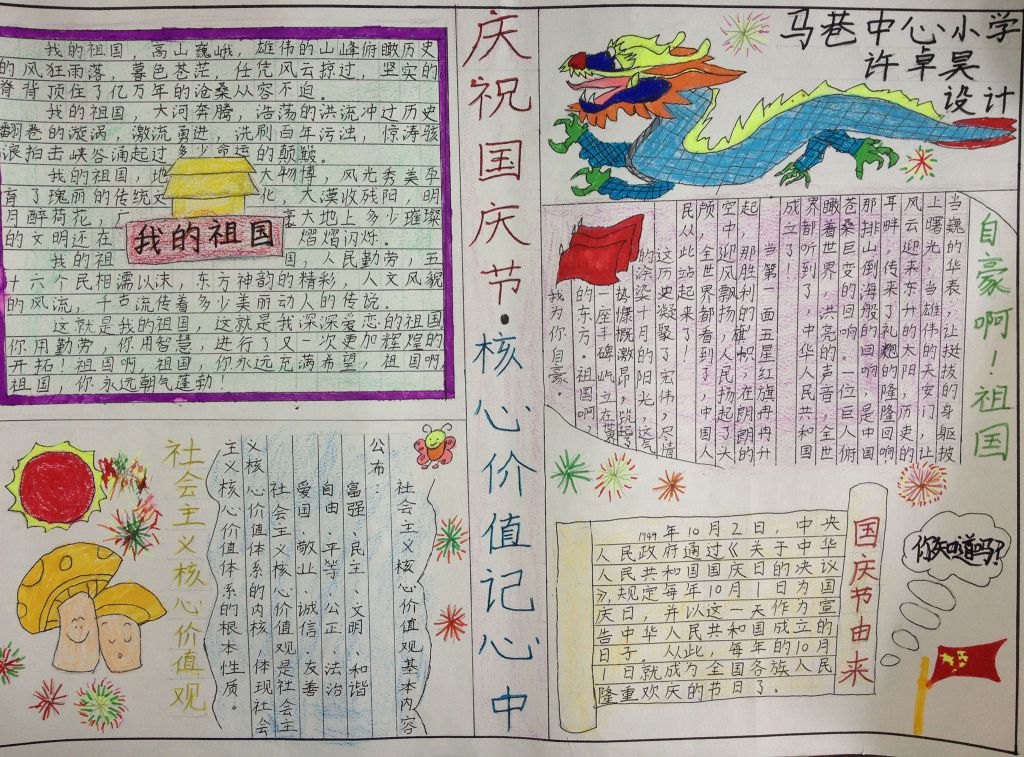 庆祝国庆节·核心价值记心中
马巷中心小学
许卓昊
设计
我的祖国，高山巍峨，雄伟的山峰俯瞰历史
的风狂雨落，暮色苍茫，任凭风云掠过，坚实的
脊背顶住了亿万年的沧桑从容不迫。
我的祖国，大河奔腾，浩荡的洪流冲过历史
翻卷的漩涡，激流勇进，洗刷百年污浊，惊涛骇
浪拍击峡谷涌起过多少命运的颠簸。
我的祖国，地大物博，风光秀美孕
育了瑰丽的传统文化，大漠收残阳，明
月醉荷花，大地上多少璀璨
的文明还在熠熠闪烁。
我的祖国，人民勤劳，五
十六个民相濡以沫，东方神韵的精彩，人文风貌
的风流，千古流传着多少美丽动人的传说。
这就是我的祖国，这就是我深深爱恋的祖国。
你用勤劳，你用智慧，进行了又一次更加辉煌的
开拓！祖国啊，祖国，你永远充满希望，祖国啊，
祖国，你永远朝气蓬勃！
我的祖国
自豪啊！祖国
当巍的华表，让挺拔的身躯披
上曙光，当雄伟的天安门，让
风云迎来东升的太阳，历史的
耳畔，传来了礼炮的隆隆回响
那排山倒海般的回响，是中国
苍桑巨变的回响。一位巨人俯
瞰着世界，洪亮的声音，全世
界都听到了，中华人民共和国
成立了！
当第一面五星红旗冉冉升
起，那胜利的旗帜，在朗朗的
空中迎风飘扬，人民扬起了头
颅，全世界都看到了，中国人
民从此站起来了。
这历史凝聚了宏伟，尽情
的涂染十月的阳光，这气
势慷慨激昂，筑起了
一座丰碑，屹立在世界
的东方。祖国啊，
我为你自豪。
社会主义核心价值观
社会主义核心价值观基本内容
公布：
富强、民主、文明、和谐
自由、平等、公正、法治
爱国、敬业、诚信、友善
社会主义核心价值观是社会主
义核心价值体系的内核，体现社会
主义核心价值体系的根本性质。
国庆节由来
1949年10月2日，中央
人民政府通过《关于中华
人民共和国国庆日的决议
》，规定每年10月1日为国
庆日，并以这一天作为宣
告中华人民共和国成立的
日子。从此，每年的10月
1日就成为全国各族人民
隆重欢庆的节日了。
你知道吗？